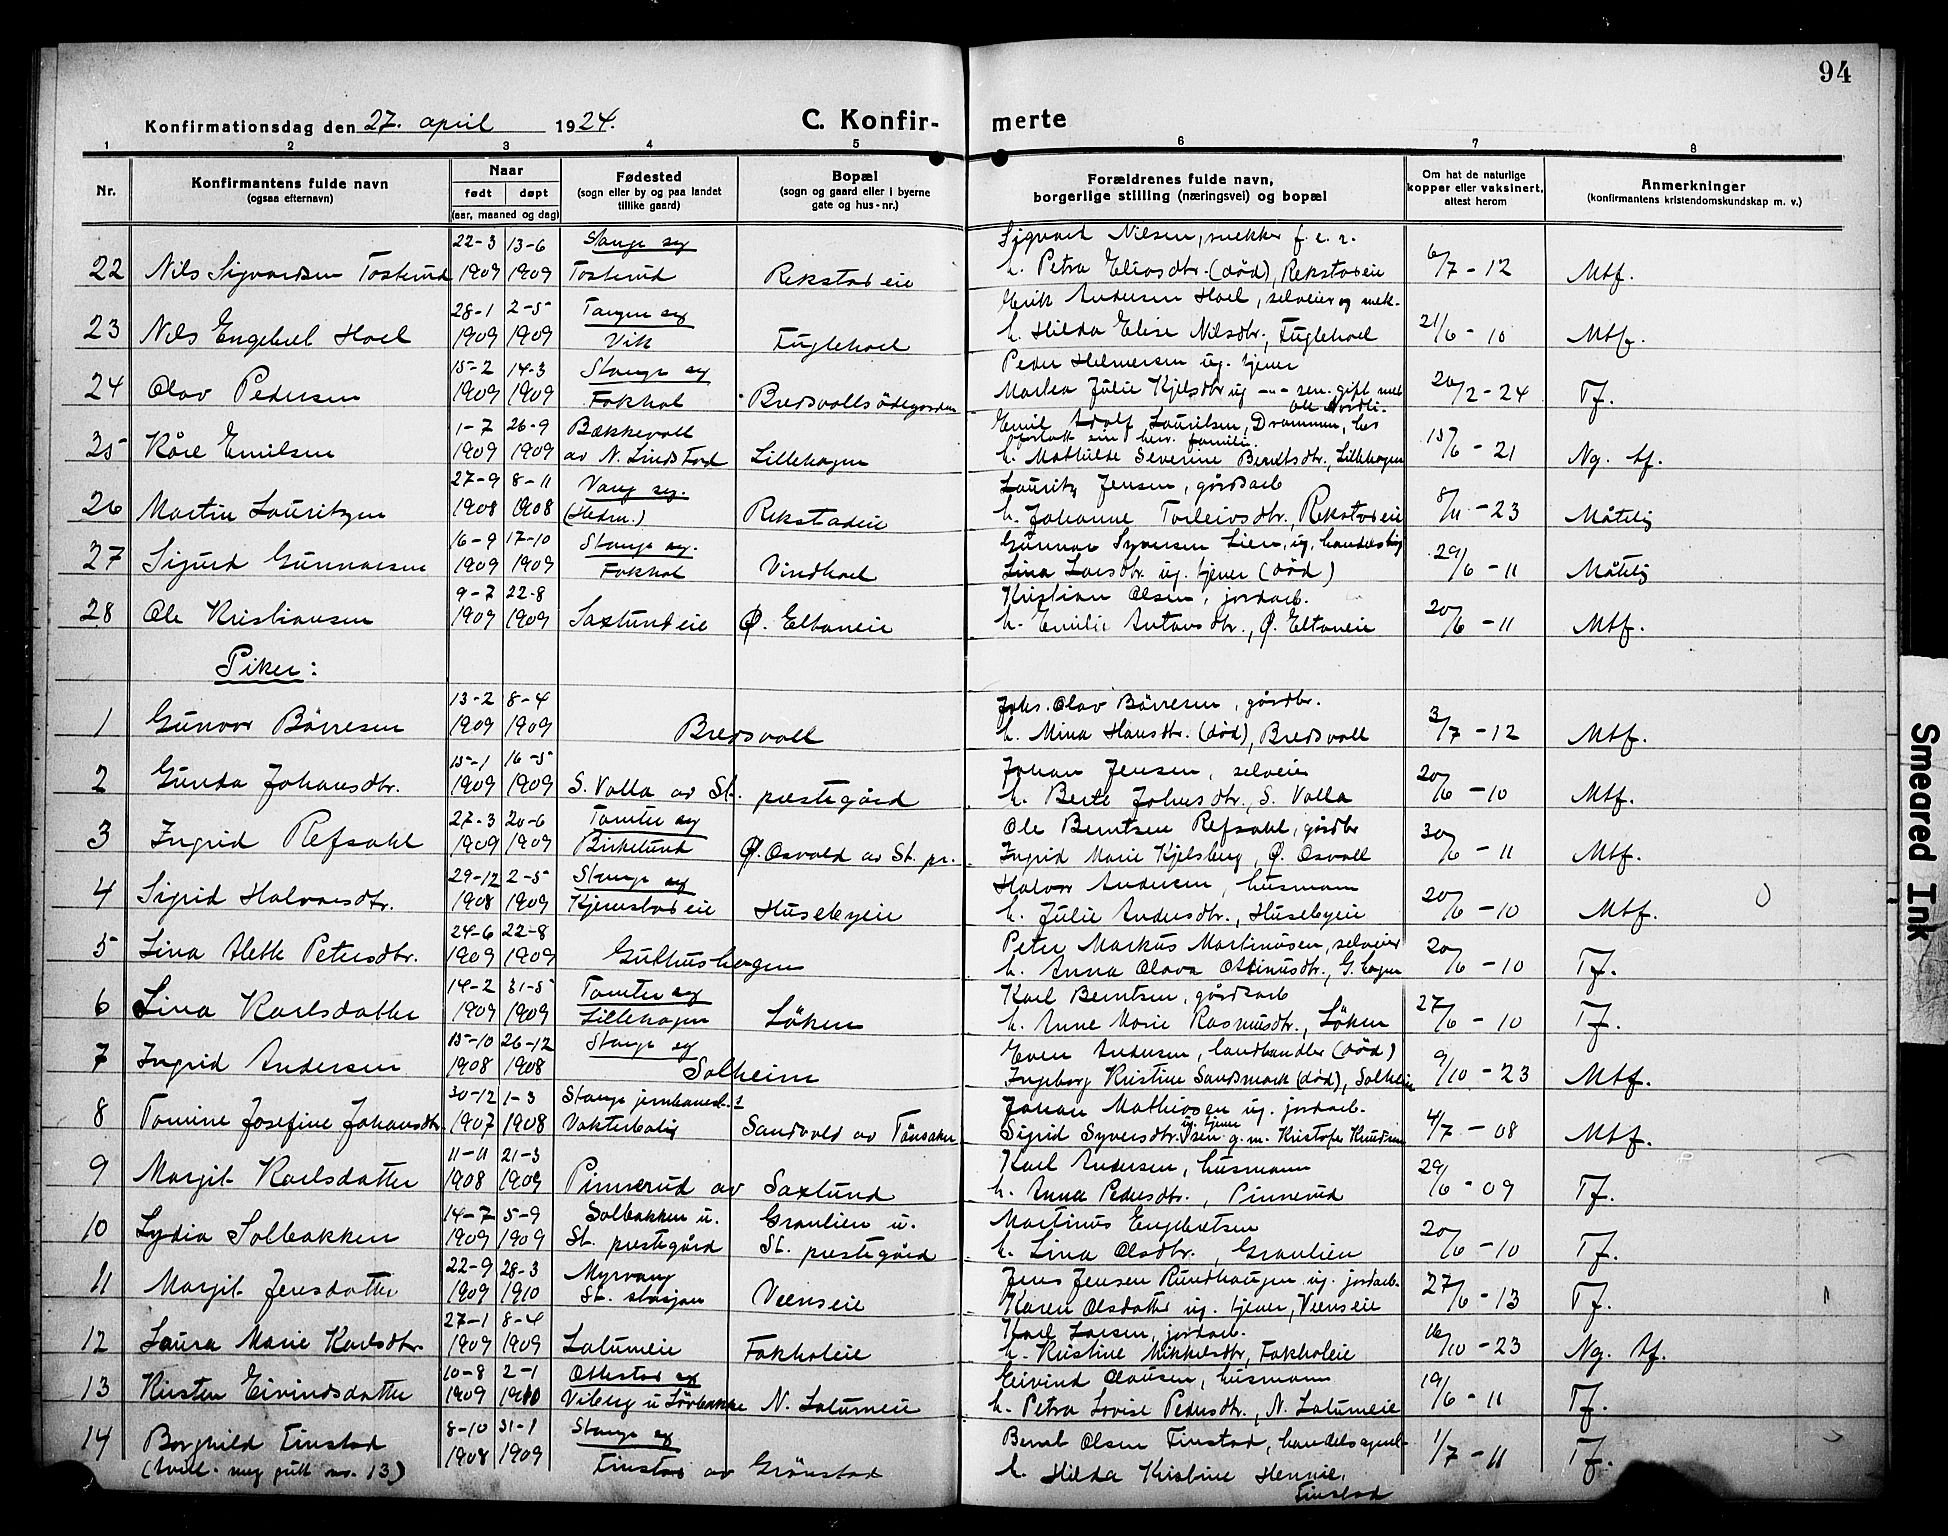 94
Konfirmationsdag den 27. april 1924. C. Konfir- merte
1 2 3 4 5 6 7 8
Nr. Konfirmantens fulde navn (ogsaa efternavn) Naar født døpt (aar, maaned og dag) Fødested (sogn eller by og paa landet tillike gaard) Bopæl (sogn og gaard eller i byerne gate og hus-nr.) Forældrenes fulde navn, borgerlige stilling (næringsvei) og bopæl Om hat de naturlige kopper eller vaksinert, attest herom Anmerkninger (konfirmantens kristendomskundskap m. v.)
22-3 13-6 Stange sg Sigvard Nilsen, snekker f. e. r.
22 Nils Sigvardsen Tosterud 1909 1909 Tosterud Rekstadeie h. Petra Eliasdtr. (død), Rekstadeie 6/7 - 12 Mtf.
28-1 2-5 Tangen sg Erik Andersen Hoel, selveier og
23 Nils Engebret Hoel 1909 1909 Vik Fuglehoel h. Hilda Elise Nilsdtr., Fuglehoel 21/6 - 10 Mtf.
15-2 14-3 Stange sg Peder Helmersen ug. tjener
24 Olav Pedersen 1909 1909 Fokhol Bredsvollsødegården Martea Julie Kjelsdtr ug -"- sen. gift med Ole Nordli. 26/2 - 24 Tf.
1-7 26-9 Bækkevoll Emil Adolf Lauritsen, Drammen, har forlatt sin herv. familie.
25 Kåre Emilsen 1909 1909 av N. Lindstad Lillehagen h. Mathilde Severine Berntsdtr., Lillehagen 15/6 - 21 Ng. tf.
27-9 8-11 Vang sg. Lauritz Jensen, gårdsarb
26 Martin Lauritzen 1908 1908 (Hedm.) Rekstadeie h. Johanne Torleivsdtr., Rekstadeie 8/11 - 23 Måtelig
16-9 17-10 Stange sg. Gunnar Syversen Lien, ug.
27 Sigurd Gunnarsen 1909 1909 Fokhol Vindhoel Lina Larsdtr. ug. tjener (død) 29/6 - 11 Måtelig
9-7 22-8 Kristian Olsen, jordarb.
28 Ole Kristiansen 1909 1909 Saxlundeie Ø. Eltoneie h. Emilie Antonsdtr., Ø. Eltoneie 20/6 - 11 Mtf.
Piker:
13-2 8-4 Johs. Olav Børresen, gårdbr.
1 Gunvor Børresen 1909 1909 Bredsvoll h. Mina Hansdtr. (død), Bredsvoll 3/7 - 12 Mtf.
15-1 16-5 Johan Jensen, selveier
2 Gunda Johansdtr. 1909 1909 S. Volla av St. prestegård h. Berte Johnsdtr., S. Volla 20/6 - 10 Mtf.
27-3 20-6 Tomter sg Ole Berntsen Refsahl, gårdbr
3 Ingrid Refsahl 1909 1909 Birkelund Ø. Osvold av St. pr. Ingrid Marie Kjelsberg, Ø. Osvoll 30/6 - 11 Mtf.
29-12 2-5 Stange sg Halvor Andersen, husmann
4 Sigrid Halvorsdtr. 1908 1909 Kjernstadeie Husebyeie h. Julie Andersdtr., Husebyeie 20/6 - 10 Mtf.
24-6 22-8 Peter Markus Martinusen, selveier
5 Lina Alette Petersdtr. 1909 1909 Guthushagen h. Anna Olava Ottinusdtr., G. hagen 20/6 - 10 Tf.
14-2 31-5 Tomter sg Karl Berntsen, gårdsarb
6 Lina Karlsdatter 1909 1909 Lillehagen Løken h. Anne Marie Rasmusdtr., Løken 27/6 - 10 Tf.
15-10 26-12 Stange sg Even Andersen, landhandler (død)
7 Ingrid Andersen 1908 1908 Solheim Ingeborg Kristine Sandsmark (død), Solheim 9/10 - 23 Mtf.
30-12 1-3 Stange jernbanest. Johan Mathiasen ug. jordarb.
8 Tomine Josefine Johansdtr. 1907 1908 Vokterbolig Sandvold av Tønsaker Sigrid Syversdtr. ug. tjener sen g. m. Kristofer Knudsen 4/7 - 08 Mtf.
11-11 21-3 Karl Andersen, husmann
9 Margit Karlsdatter 1908 1909 Pinnerud av Saxlund h. Anna Pedersdtr., Pinnerud 29/6 - 09 Tf.
14-7 5-9 Solbakken u. Granlien u. Martinus Engebretsen
10 Lydia Solbakken 1909 1909 St. prestegård St. prestegård h. Lina Olsdtr., Granlien 20/6 - 10 Tf.
22-9 28-3 Myrvang Jens Jensen Rundhaugen ug. jordarb.
11 Margit Jensdatter 1909 1910 St. stasjon Veenseie Karen Olsdatter ug. tjener, Veenseie 27/6 - 13 Tf.
27-1 8-4 Karl Larsen, jordarb.
12 Laura Marie Karlsdtr 1909 1909 Lalumeie Fokholeie h. Kristine Mikkelsdtr, Fokholeie 16/10 - 23 Ng. tf.
10-8 2-1 Ottestad sg Eivind Clausen, husmann
13 Kirsten Eivindsdatter 1909 1910 Viberg u Lørbakke N. Lalumeie h. Petra Lovise Pedersdtr., N. Lalumeie 19/6 - 11 Tf.
8-10 31-1 Stange sg Bernt Olsen Finstad, handelsagent
14 Borghild Finstad 1908 1909 Finstad av Grønstad h. Hilda Kristine Hennie, Finstad 1/7 - 11 Tf.
(tvil. meg gutt no. 13)
Smeared Ink